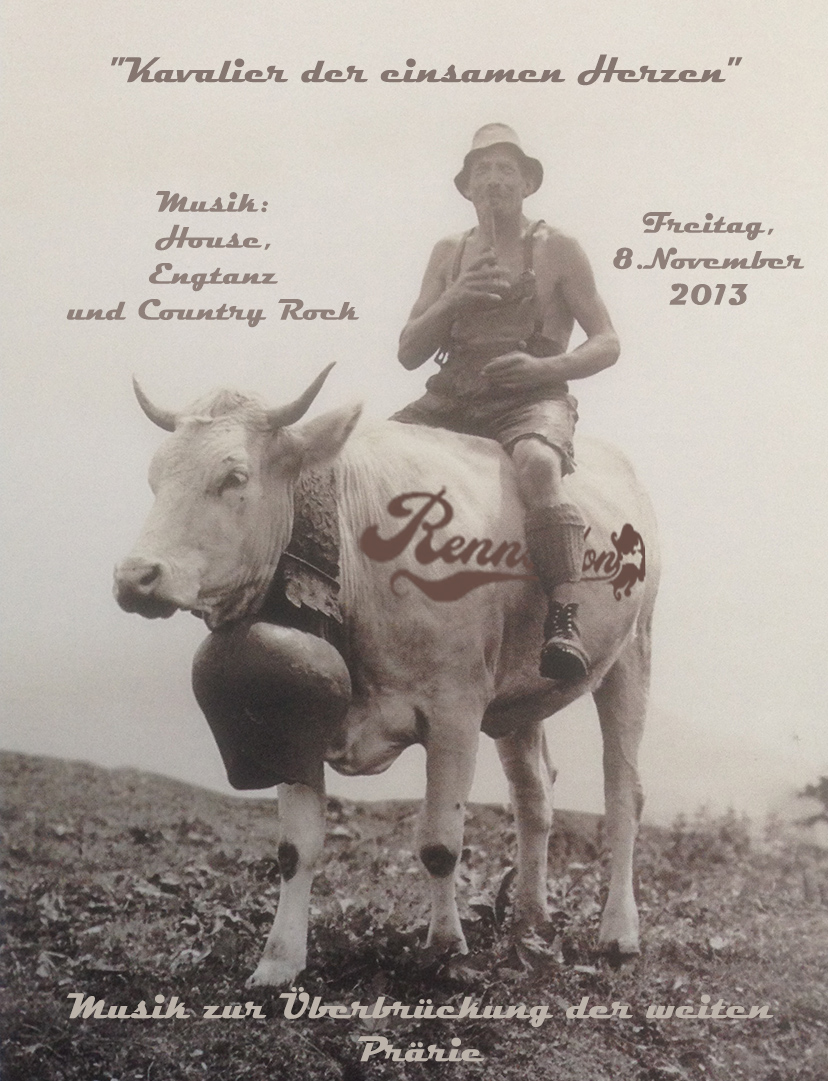 "Kavalier der einsamen Herzen"
Musik:
House,
Engtanz
und Country Rock
Freitag,
8.November
2013
Musik zur Überbrückung der weiten
Prärie